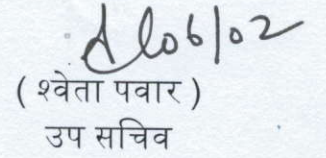 06/02
( श्वेता पवार )
उप सचिव